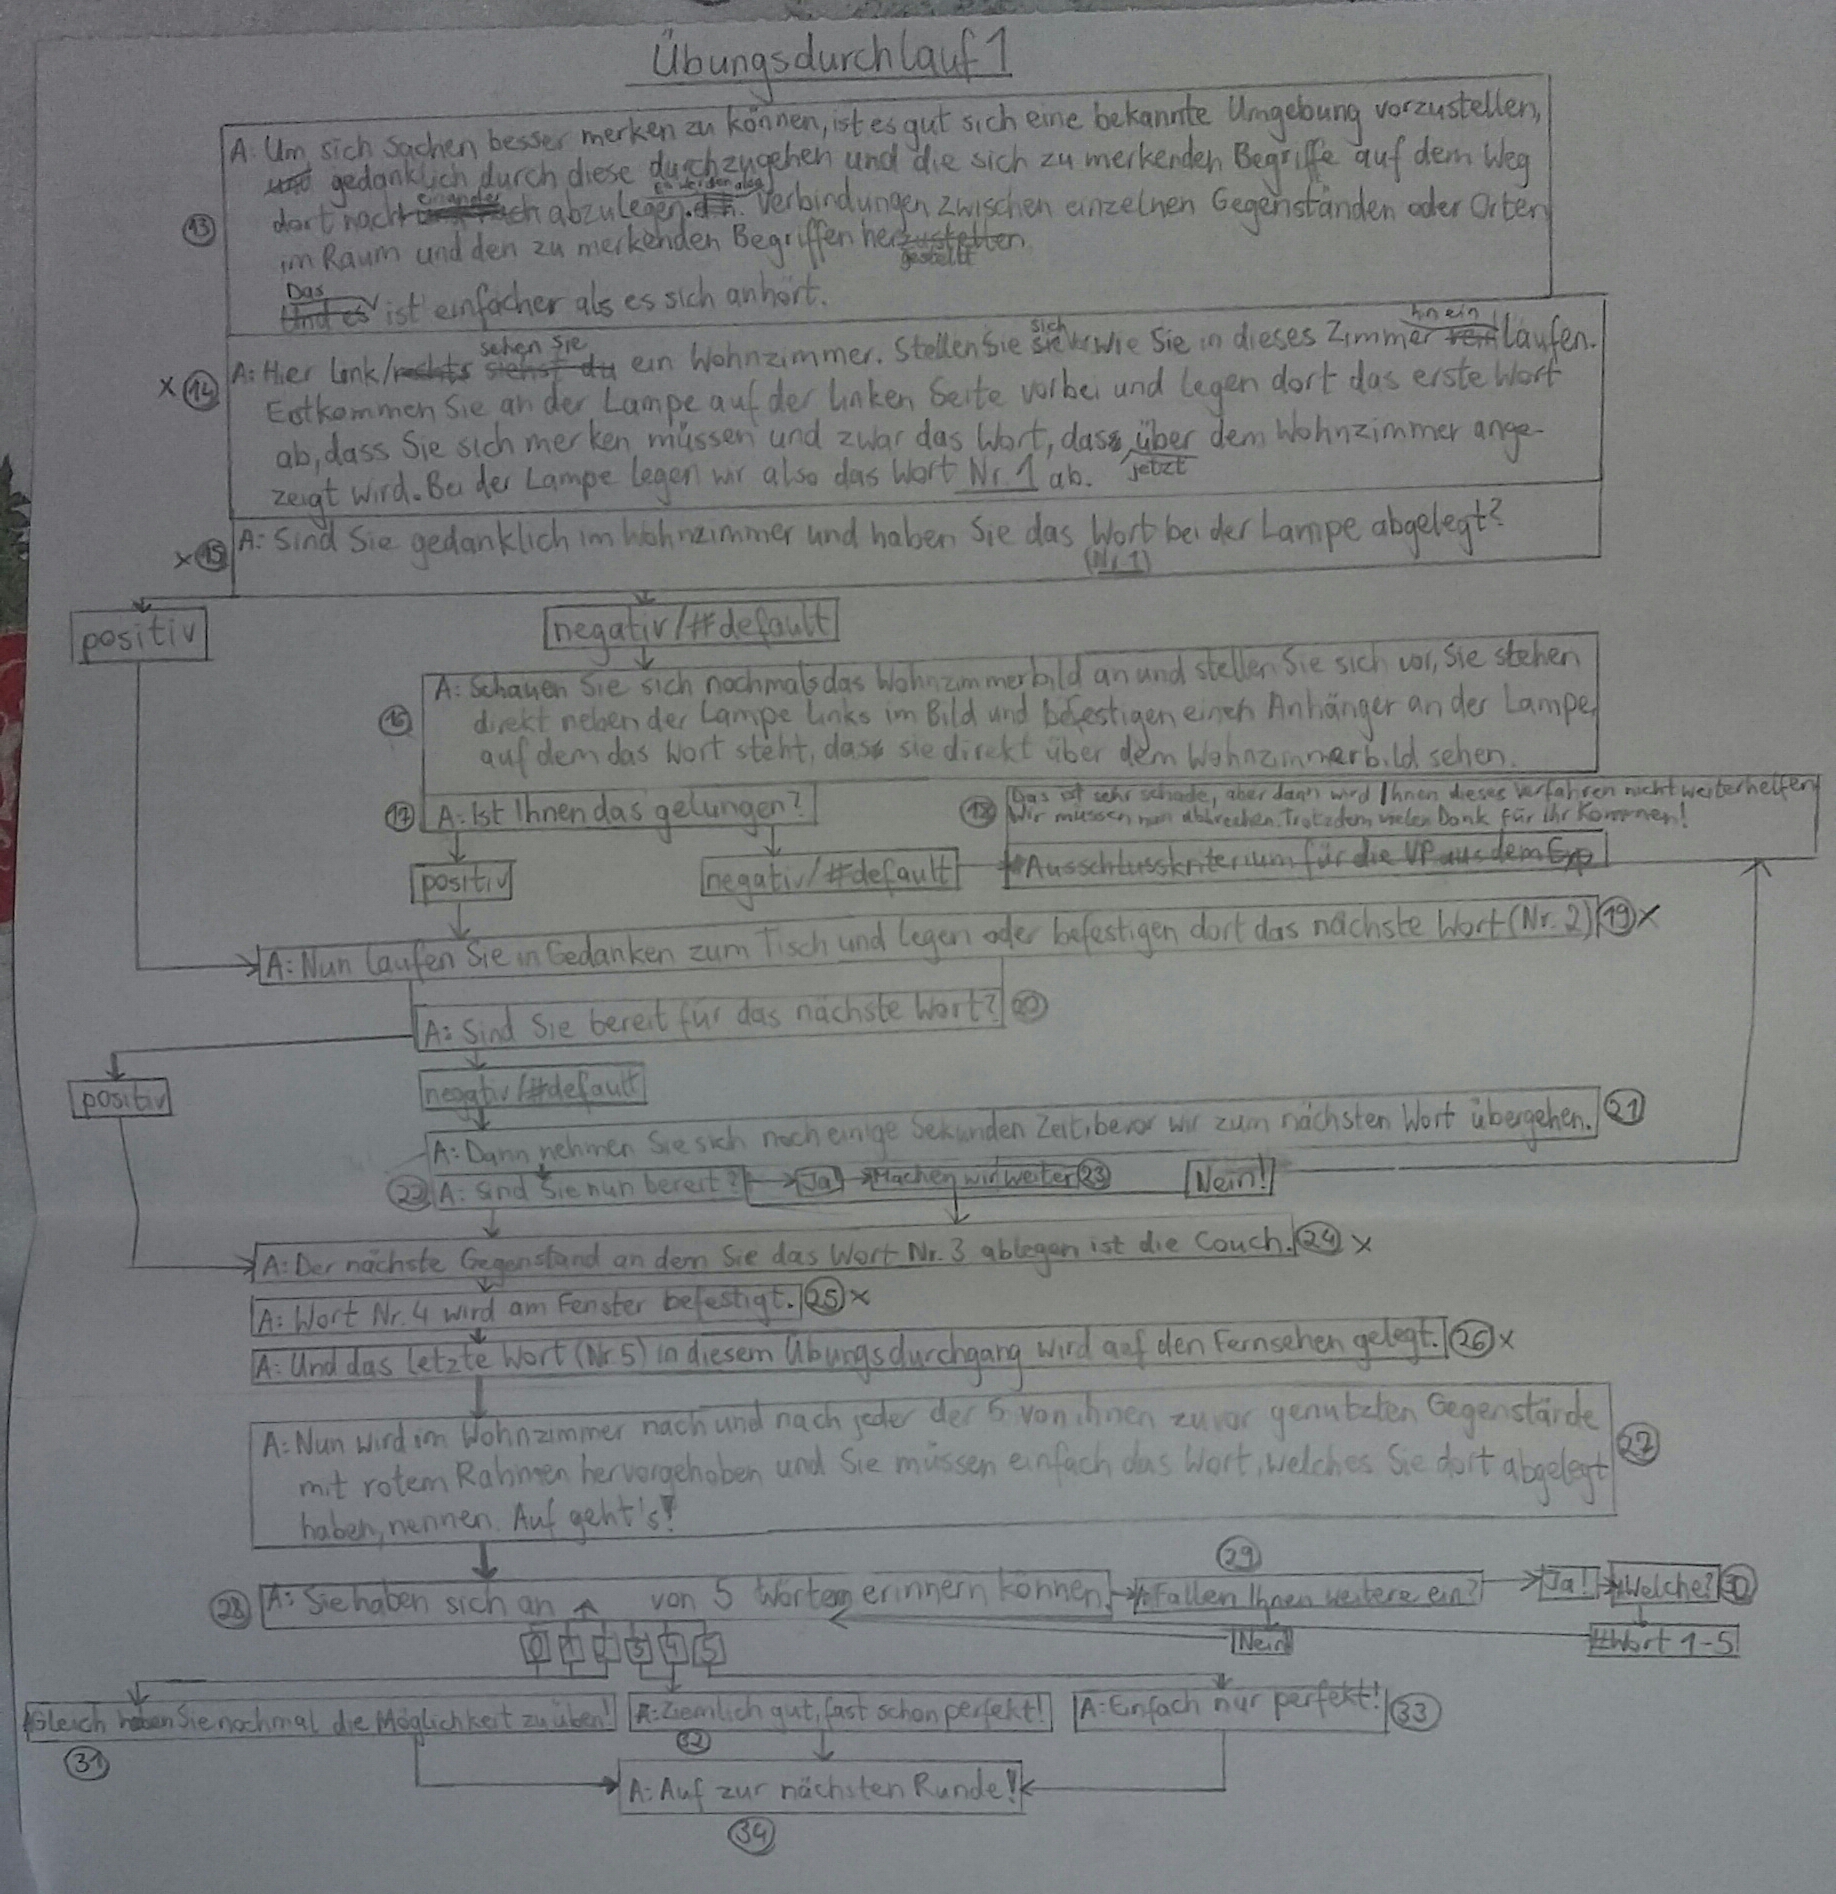 Übungsdurchlauf 1
A: Um sich Sachen besser merken zu können, ist es gut sich eine bekannte Umgebung vorzustellen,
und gedanklich durch diese durchzugehen und die sich zu merkenden Begriffe auf dem Weg
einander Es werden also
13 dort nach abzulegen. d.h. Verbindungen zwischen einzelnen Gegenständen oder Orten
im Raum und den zu merkenden Begriffen herzustellen.
gestellt
Das
Und es ist einfacher als es sich anhört.
sehen Sie sich hinein
x 14 A: Hier link/rechts siehst du ein Wohnzimmer. Stellen Sie sie vor wie Sie in dieses Zimmer rein laufen.
Erst kommen Sie an der Lampe auf der linken Seite vorbei und legen dort das erste Wort
ab, dass Sie sich merken müssen und zwar das Wort, dass über dem Wohnzimmer ange-
jetzt
zeigt wird. Bei der Lampe legen wir also das Wort Nr. 1 ab.
x 15 A: Sind Sie gedanklich im Wohnzimmer und haben Sie das Wort bei der Lampe abgelegt?
(Nr. 1)
positiv negativ/#default
A: Schauen Sie sich nochmals das Wohnzimmerbild an und stellen Sie sich vor, Sie stehen
16 direkt neben der Lampe links im Bild und befestigen einen Anhänger an der Lampe,
auf dem das Wort steht, dass sie direkt über dem Wohnzimmerbild sehen.
17 A: Ist Ihnen das gelungen? 18 Das ist sehr schade, aber dann wird Ihnen dieses Verfahren nicht weiterhelfen
Wir müssen nun abbrechen. Trotzdem vielen Dank für Ihr Kommen!
positiv negativ/#default Ausschlusskriterium für die VP aus dem Exp
A: Nun laufen Sie in Gedanken zum Tisch und legen oder befestigen dort das nächste Wort (Nr. 2) 19 x
A: Sind Sie bereit für das nächste Wort? 20
positiv negativ/#default
A: Dann nehmen Sie sich noch einige Sekunden Zeit, bevor wir zum nächsten Wort übergehen. 21
22 A: Sind Sie nun bereit? Ja! Machen wir weiter 23 Nein!
A: Der nächste Gegenstand an dem Sie das Wort Nr. 3 ablegen ist die Couch. 24 x
A: Wort Nr. 4 wird am Fenster befestigt. 25 x
A: Und das letzte Wort (Nr. 5) in diesem Übungsdurchgang wird auf den Fernsehen gelegt. 26 x
A: Nun wird im Wohnzimmer nach und nach jeder der 5 von ihnen zuvor genutzten Gegenstände
mit rotem Rahmen hervorgehoben und Sie müssen einfach das Wort, welches Sie dort abgelegt 27
haben, nennen. Auf geht's!
29
28 A: Sie haben sich an von 5 Wörtern erinnern können. Fallen Ihnen weitere ein? Ja! Welche? 30
0 1 2 3 4 5 Nein #Wort 1-5
Gleich haben Sie nochmal die Möglichkeit zu üben! A: Ziemlich gut, fast schon perfekt! A: Einfach nur perfekt! 33
31 32
A: Auf zur nächsten Runde!
34